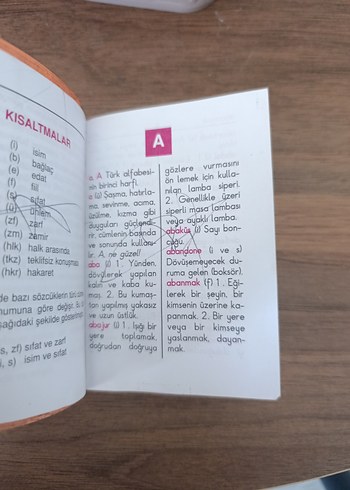 KISALTMALAR
(i) isim
(b) bağlaç
(e) edat
(f) fiil
(s) sıfat
(ü) ünlem
(zf) zarf
(zm) zamir
(hlk) halk arasında
(tkz) teklifsiz konuşma
(hkr) hakaret
de bazı sözcüklerin türü, cüm
numuna göre değişir. B
şağıdaki şekilde gösterilmi
s, zf) sıfat ve zarf
i, s) isim ve sıfat
A
a, A Türk alfabesi-
nin birinci harfi.
a (ü) Şaşma, hatırla-
ma, sevinme, acıma,
üzülme, kızma gibi
duyguları güçlendi-
rir, cümlenin başında
ve sonunda kullanı-
lır. A, ne güzel!
aba (i) 1. Yünden,
dövülerek yapılan
kalın ve kaba ku-
maş. 2. Bu kumaş-
tan yapılmış yakasız
ve uzun üstlük.
abajur (i) 1. Işığı bir
yere toplamak,
doğrudan doğruya
gözlere vurmasını
ön lemek için kulla-
nılan lamba siperi.
2. Genellikle üzeri
siperli masa lambası
veya ayaklı lamba.
abaküs (i) Sayı bon-
cuğu.
abandone (i ve s)
Dövüşemeyecek du-
ruma gelen (boksör).
abanmak (f) 1. Eği-
lerek bir şeyin, bir
kimsenin üzerine ka-
panmak. 2. Bir yere
veya bir kimseye
yaslanmak, dayan-
mak.